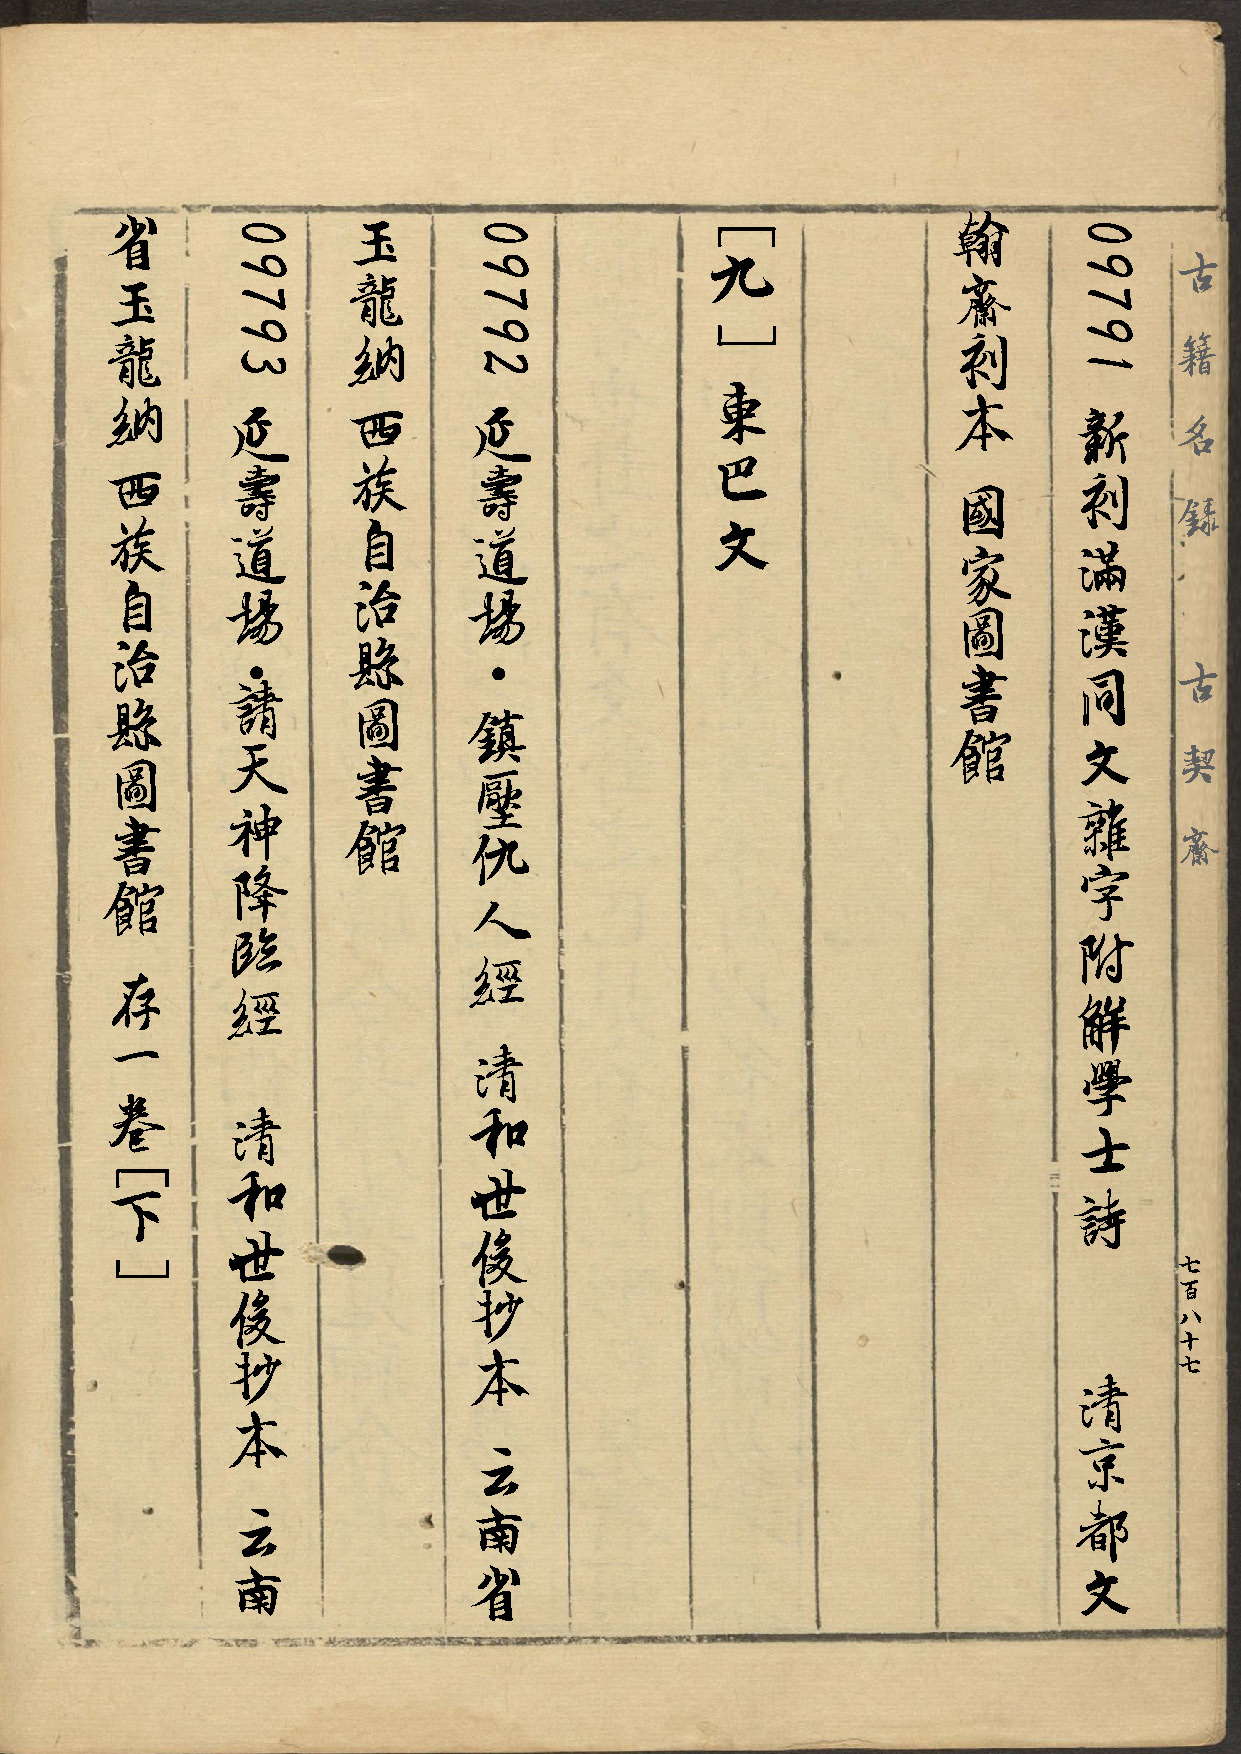 古籍名録 古契齋
七百八十七
09791 新刻滿漢同文雜字附解學士詩 清京都文
翰齋刻本 國家圖書館
［九］東巴文
09792 延壽道場·鎮壓仇人經 清和世俊抄本 云南省
玉龍納西族自治縣圖書館
09793 延壽道場·請天神降臨經 清和世俊抄本 云南
省玉龍納西族自治縣圖書館 存一卷［下］